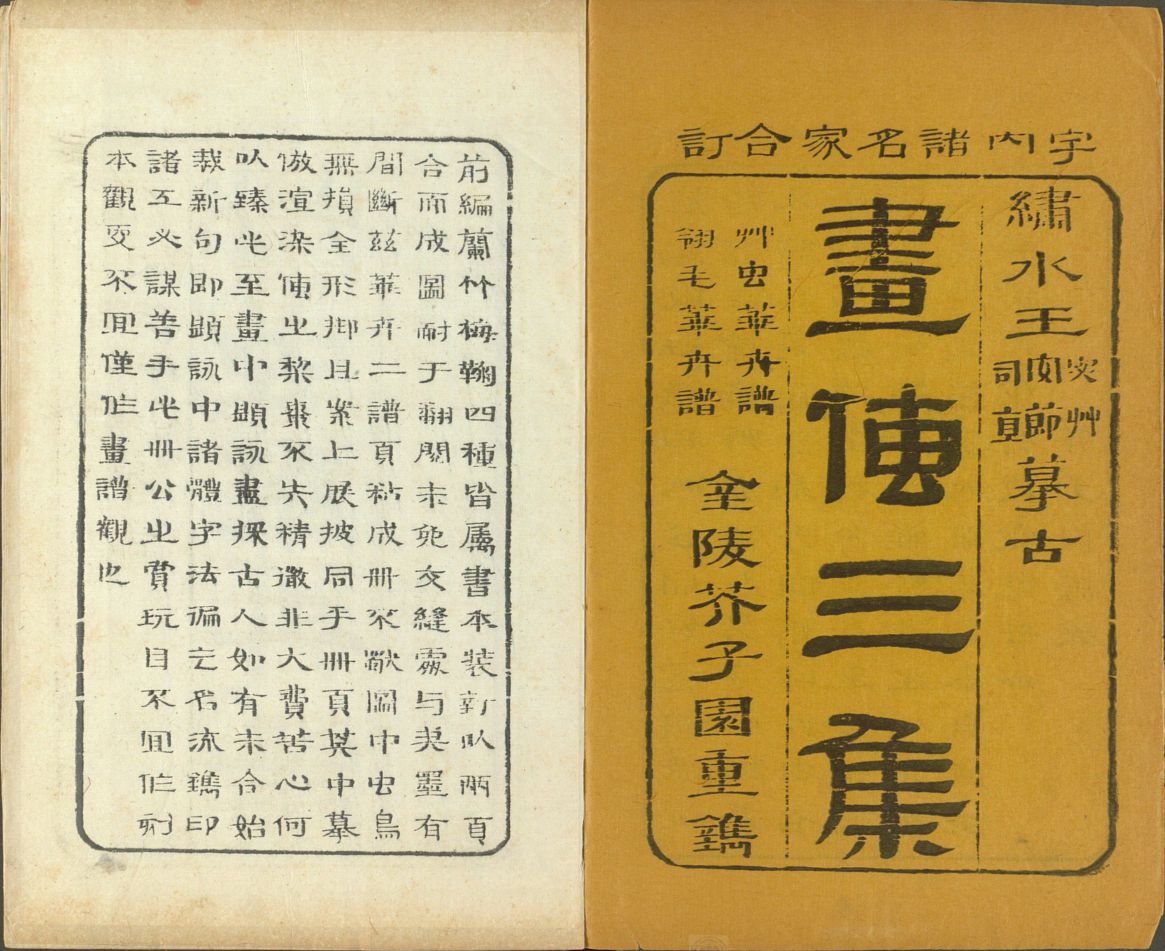 宇內諸名家合訂
繡水王
宓艸
安節
司直
摹古
畫傳三集
艸虫華卉譜
翎毛華卉譜
金陵芥子園重鐫
前編蘭竹梅鞠四種皆屬書本裝訂以兩頁
合而成圖耐于翻閱未免交縫處与夾墨有
間斷茲華卉二譜頁粘成冊不獨圖中虫鳥
無損全形卽且案上展披同乎冊頁其中摹
倣渲染傳之梨棗不失精微非大費苦心何
以臻此至畫中題詠盡採古人如有未合始
裁新句即題詠中諸體字法徧乞名流鐫印
諸工必謀善手此冊公之賞玩自不宜作刻
本觀更不宜僅作畫譜觀也